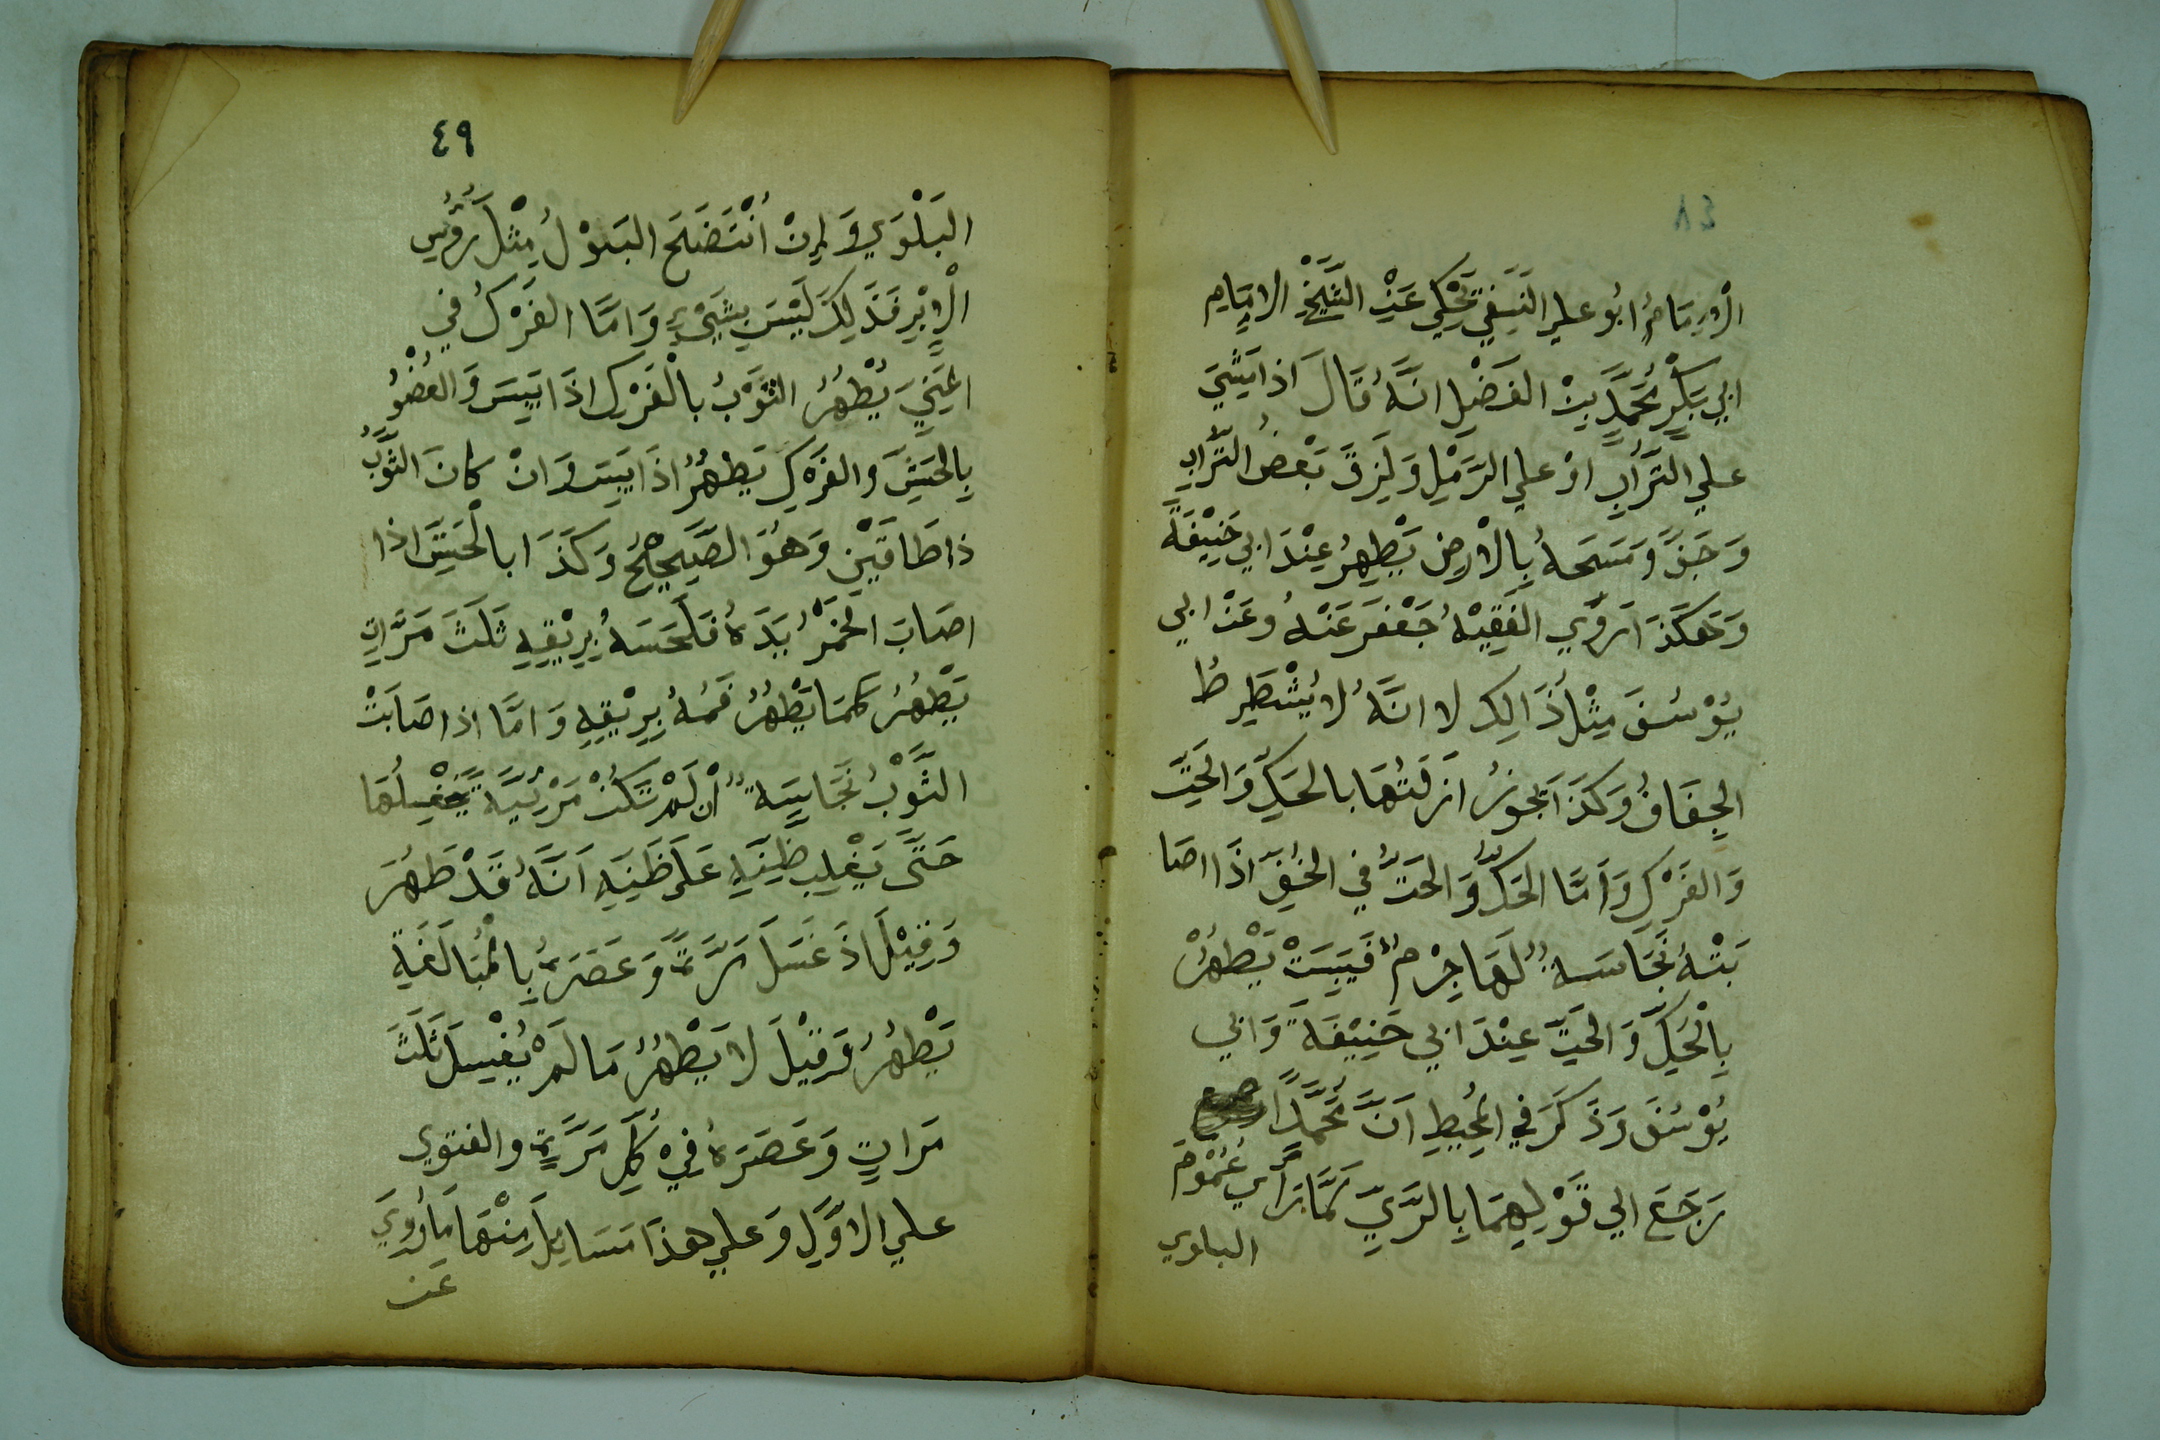 ٤٨
الْاِمَامُ ابُو علي النَسَفِي يَحْكِي عَنِ الشَّيْخِ الامَامِ
ابي بَكْرٍ مُحَمَّدٍ بِنْ الفَضْلِ انَّهُ قَالَ اذا مَشَيَ
علي التُرَابِ اوْ علي الرَّمْلِ وَلَزِقَ بَعْضُ التُّرَابِ
وَجَفَّ وَمَسَحَهُ بِالارضِ يَطْهُرُ عِنْدَ ابي حَنِيْفَةَ
وَهَكَذَا رَوَي الفَقِيْهُ جَعْفَر عَنْهُ وعَنْ ابي
يُوْسُفَ مِثْلُ ذَالِكَ لا انَّهُ لا يُشْطَرِطُ
الجَفَافُ وَكَذَا يَجوزُ ازَلَتُهَا بالحَكِّ وَالحَتِّ
وَالفَرْكِ وَاَمَّا الحَكُّ وَالحَتُّ في الخُفِّ اذَا اصَا
بَتْهُ نَجَاسَه لَهَا جِرْمٌ فَيَبِسَتْ يَطْهُرُ
بِالْحَكِّ وَالحَتِّ عِنْدَ ابي حَنِيْفَةَ وَابي
يُوْسُفَ وَذَكَرَ في المُحِيْطِ اَنَّ مُحَمَّدًا
رَجَعَ الي قَوْلِهِمَا بِالرَّيِّ لَمَّا رَأَي عُمُوْمَ
البلوي
٤٩
البَلْوَي وَاِنْ اُنْتَضَحَ البَوْلُ مِثْلَ رُؤُسِ
الْاِبْرِ فَذَلِكَ لَيْسَ بِشَيْءٍ وَامَّا الفَرْكُ في
المَنِيَ يُطْهُرُ الثَوْبُ بالْفَرْكِ اذَا يَبِسَ وَالعُضْوُ
بِالحَتِّ وَالفَرْكِ يَطهُرُ اذَا يَبِسَ وَانْ كانَ الثَوْبُ
ذا طَاقَيْنِ وَهُوَ الصَّحِيْحُ وَكَذَا بالْحَتِّ اذَا
اصَابَ الخَمْرُ يَدَهُ فَلَحَسَهُ بِرِيْقِهِ ثَلَثَ مَرَّاتٍ
يَطْهُرُ كَمَا يَطْهُرُ فَمُهُ بِرِيْقِهِ وَامَّا اذا صَابَتْ
الثَّوْبُ نَجَاسَةٌ اِنْ لَمْ تَكُنْ مَرْئِيَّةً يَغْسِلُهَا
حَتَّى يَغْلِبَ ظَنِّهِ عَلَى ظَنِّهِ اَنَّهُ قَدْ طَهُرَ
وَقِيْلَ اذَ غَسَلَ مَرَّةً وَعَصَرَهُ بِالْمُبَالَغَةِ
يَطْهُرُ وَقِيْلَ لَا يَطْهُرُ مَا لَمْ يُغْسِلَ ثَلَثَ
مَرَاتٍ وَعَصَرَهُ فِيْ كُلِّ مَرَّةٍ والفتوي
علي الاوَّلِ وَعلي هذَا مَسَايِلَ مِنْهَا مَا رُوِيَ
عن